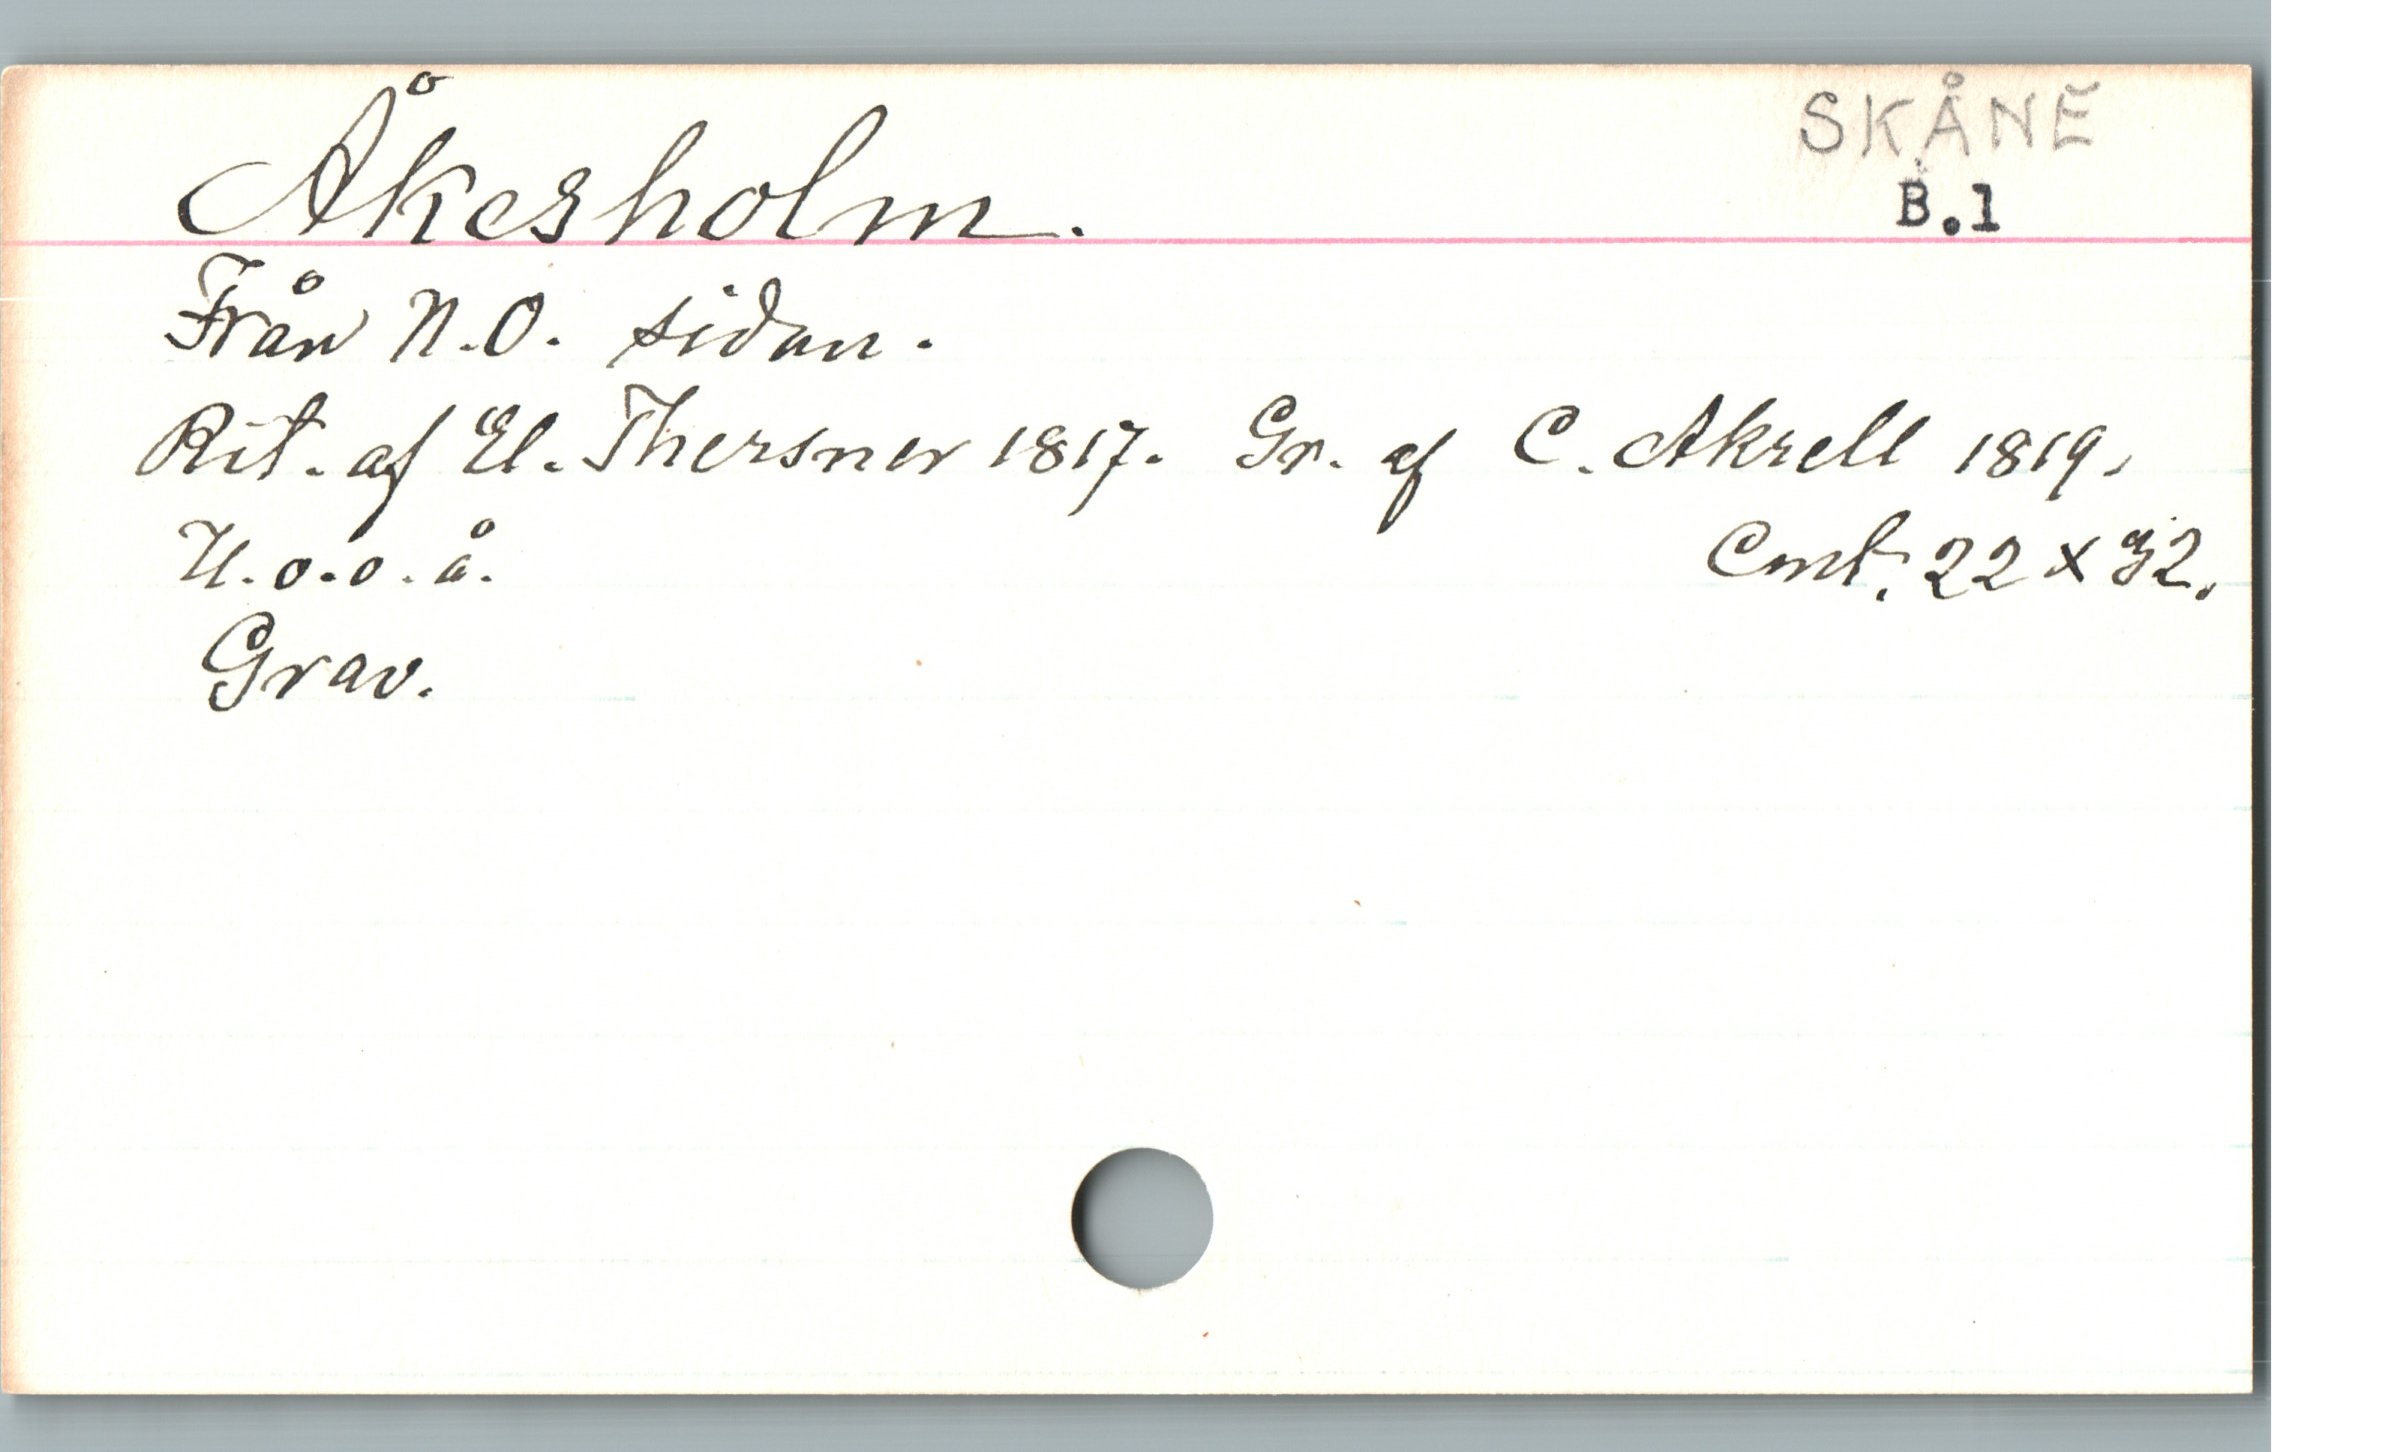 SKÅNE
Åkesholm. B.1
Från N.O. sidan.
Rit. af Ul. Thersner 1817. Gr. af C. Akrell 1819.
U.o.o.å. Cmt. 22 x 32.
Grav.